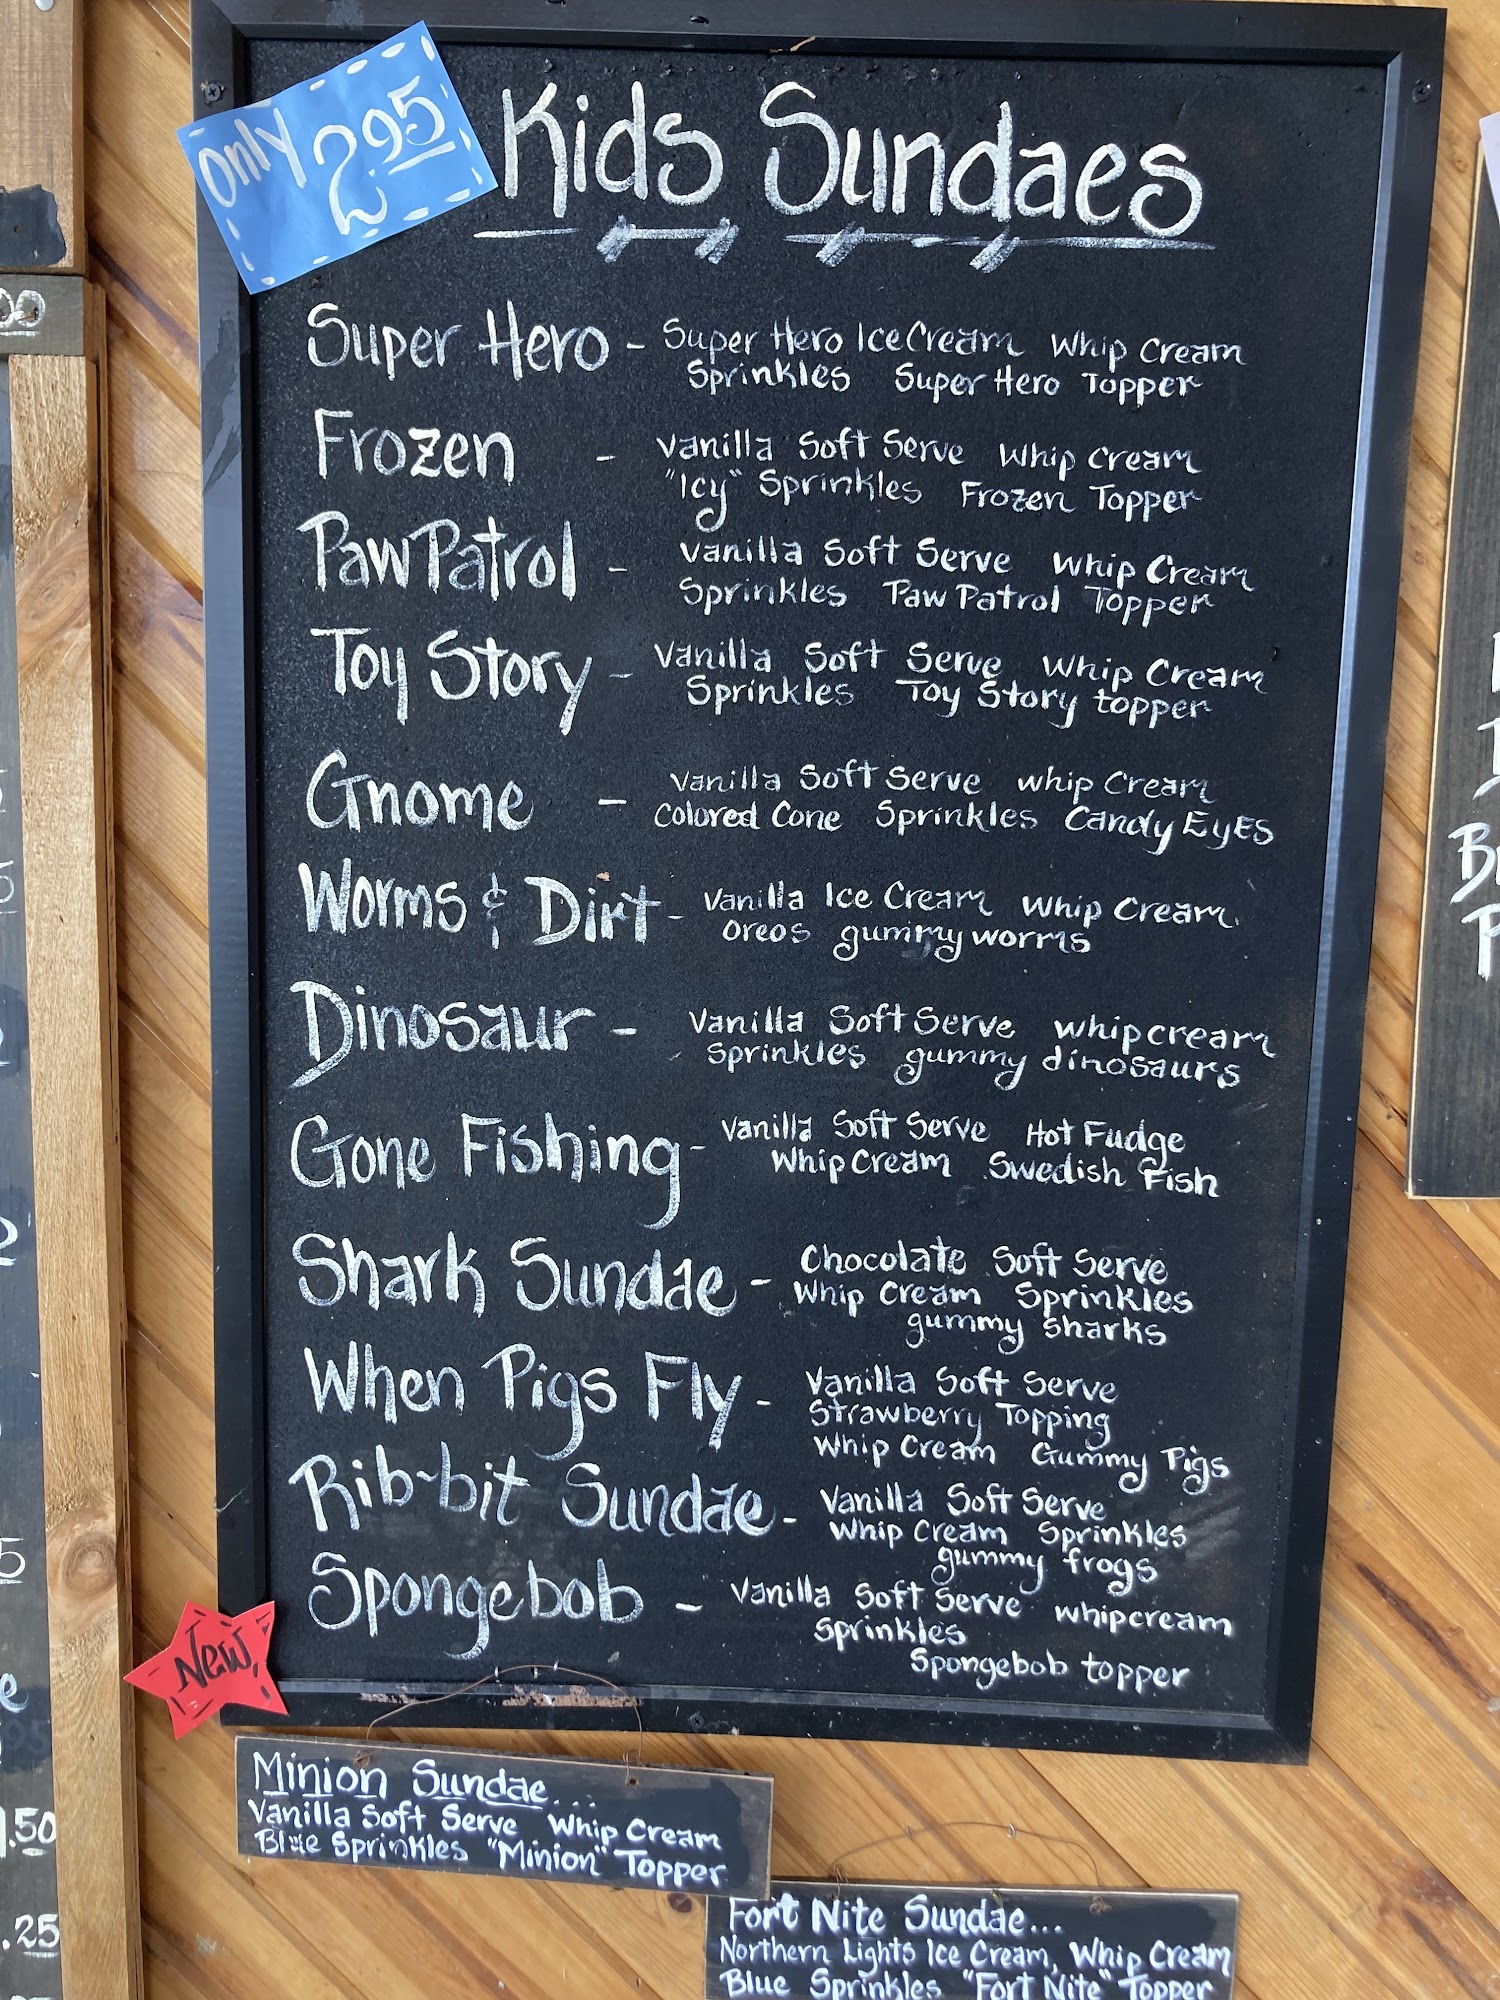 only 2.95
Kids Sundaes
Super Hero - Super Hero Ice Cream Whip Cream
Sprinkles Super Hero Topper
Frozen - Vanilla Soft Serve Whip Cream
"Icy" Sprinkles Frozen Topper
Paw Patrol - Vanilla Soft Serve Whip Cream
Sprinkles Paw Patrol Topper
Toy Story - Vanilla Soft Serve Whip Cream
Sprinkles Toy Story topper
Gnome - Vanilla Soft Serve whip Cream
Colored Cone Sprinkles Candy EyEs
Worms & Dirt - Vanilla Ice Cream Whip Cream
Oreos gummy worms
Dinosaur - Vanilla Soft Serve whip cream
Sprinkles gummy dinosaurs
Gone Fishing - Vanilla Soft Serve Hot Fudge
Whip Cream Swedish Fish
Shark Sundae - Chocolate Soft Serve
Whip Cream Sprinkles
gummy sharks
When Pigs Fly - Vanilla Soft Serve
Strawberry Topping
Whip Cream Gummy Pigs
Rib-bit Sundae - Vanilla Soft Serve
Whip Cream Sprinkles
gummy frogs
Spongebob - Vanilla Soft Serve whip cream
Sprinkles
Spongebob topper
New
Minion Sundae...
Vanilla Soft Serve Whip Cream
Blue Sprinkles "Minion" Topper
Fort Nite Sundae...
Northern Lights Ice Cream, Whip Cream
Blue Sprinkles "Fort Nite" Topper
.50
.25